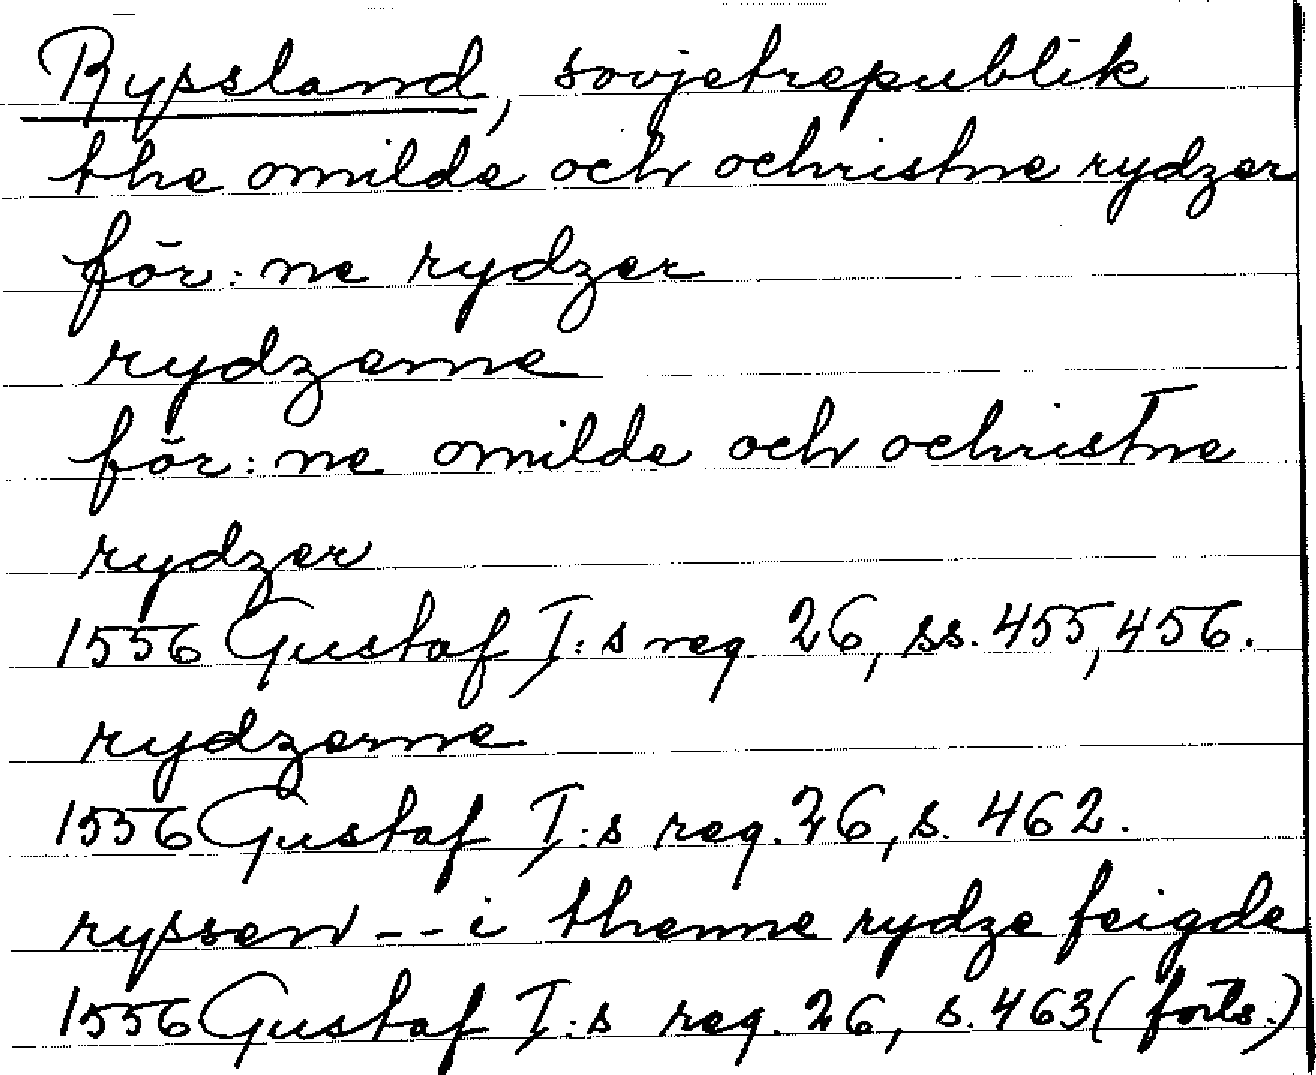 Ryssland, sovjetrepublik
the omilde och ochristne rydzer
för:ne rydzer
rydzerne
för:ne omilde och ochristne
rydzer
1556 Gustaf I:s reg 26, ss. 455, 456.
rydzerne
1556 Gustaf I:s reg. 26, s. 462.
ryssen -- i thenne rydze feigde
1556 Gustaf I:s reg. 26, s. 463 (forts.)